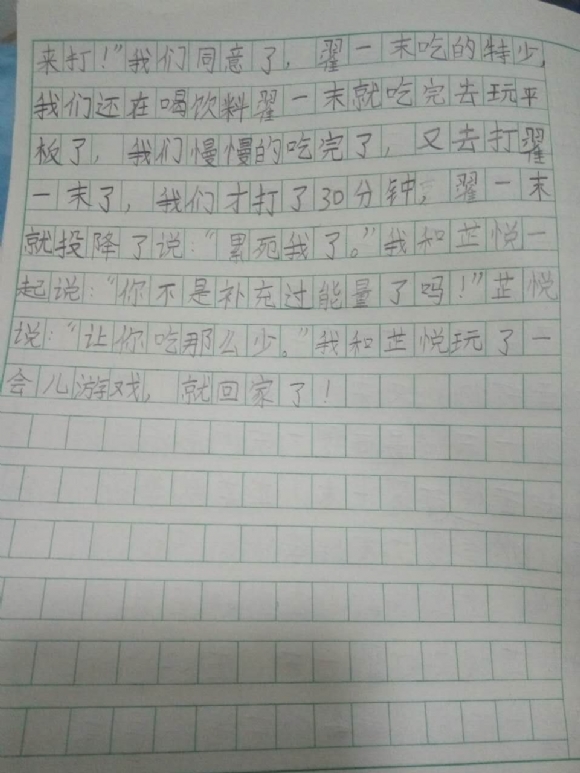 来打！”我们同意了，翟一末吃的特少，
我们还在喝饮料翟一末就吃完去玩平
板了，我们慢慢的吃完了，又去打翟
一末了，我们才打了30分钟，翟一末
就投降了说：“累死我了。”我和芷悦一
起说：“你不是补充过能量了吗！”芷悦
说：“让你吃那么少。”我和芷悦玩了一
会儿游戏，就回家了！